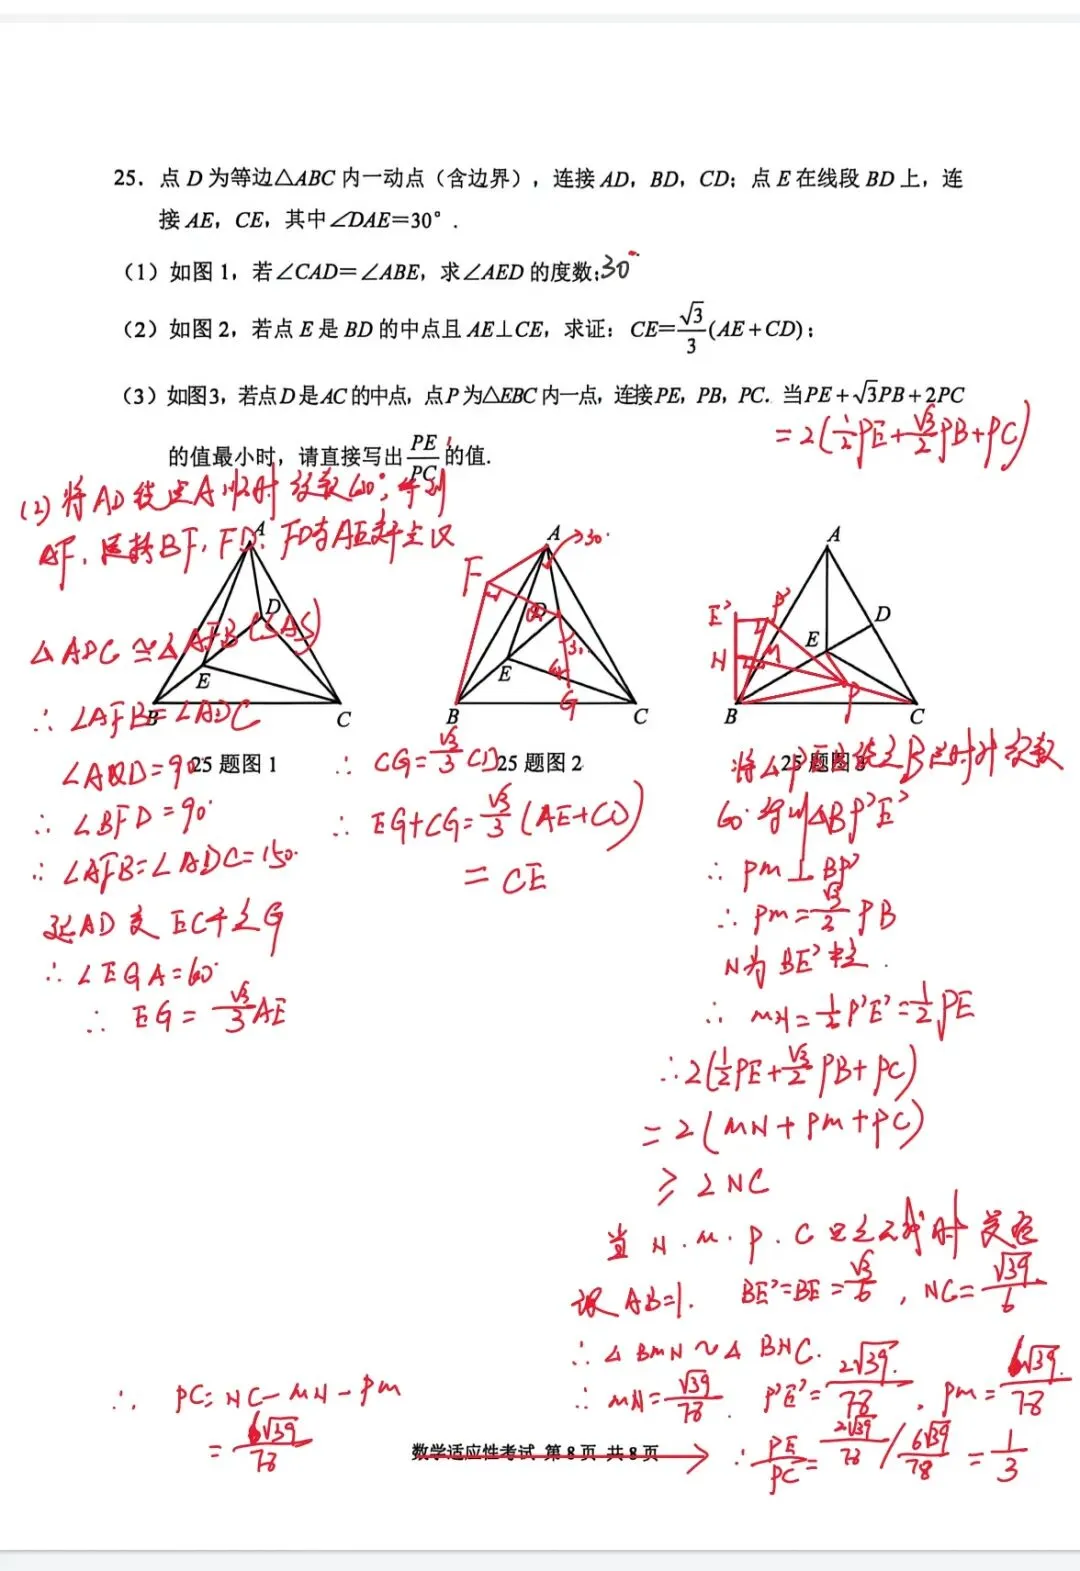 25. 点 D 为等边△ABC 内一动点（含边界），连接 AD，BD，CD；点 E 在线段 BD 上，连
接 AE，CE，其中∠DAE=30°.
（1）如图 1，若∠CAD=∠ABE，求∠AED 的度数；30°
（2）如图 2，若点 E 是 BD 的中点且 AE⊥CE，求证：CE=√3/3(AE+CD)；
（3）如图3，若点D是AC的中点，点P为△EBC内一点，连接PE，PB，PC．当PE+√3PB+2PC
=2(1/2PE+√3/2PB+PC)
的值最小时，请直接写出PE/PC的值.
(2) 将AD绕点A顺时针旋转60°，得到
AF，连接BF，FD. FD与AE交于点Q
△ADC≅△AFB(SAS)
∴∠AFB=∠ADC
∠AQD=90
∴∠BFD=90°
∴∠AFB=∠ADC=150°
延AD交EC于点G
∴∠EGA=60°
∴EG=√3/3AE
A
D
E
B
C
25 题图 1
A
30°
F
Q
D
E
30
G
B
C
25 题图 2
∴CG=√3/3CD
∴EG+CG=√3/3(AE+CD)
=CE
A
D
E
E'
P'
N
M
P
B
C
25 题图 3
将△PEB绕点B逆时针旋转
60°得到△BP'E'
∴PM⊥BP'
∴PM=√3/2PB
N为BE'中点.
∴MN=1/2P'E'=1/2PE
∴2(1/2PE+√3/2PB+PC)
=2(MN+PM+PC)
≥2NC
当N.M.P.C四点共线时
设AB=1. BE'=BE=√3/6，NC=√39/6
∴△BMN∽△BNC.
∴MN=√39/78. P'E'=2√39/78. PM=6√39/78
∴PC=NC-MN-PM
=6√39/78
∴PE/PC=2√39/78/6√39/78=1/3
数学适应性考试 第 8 页 共 8 页